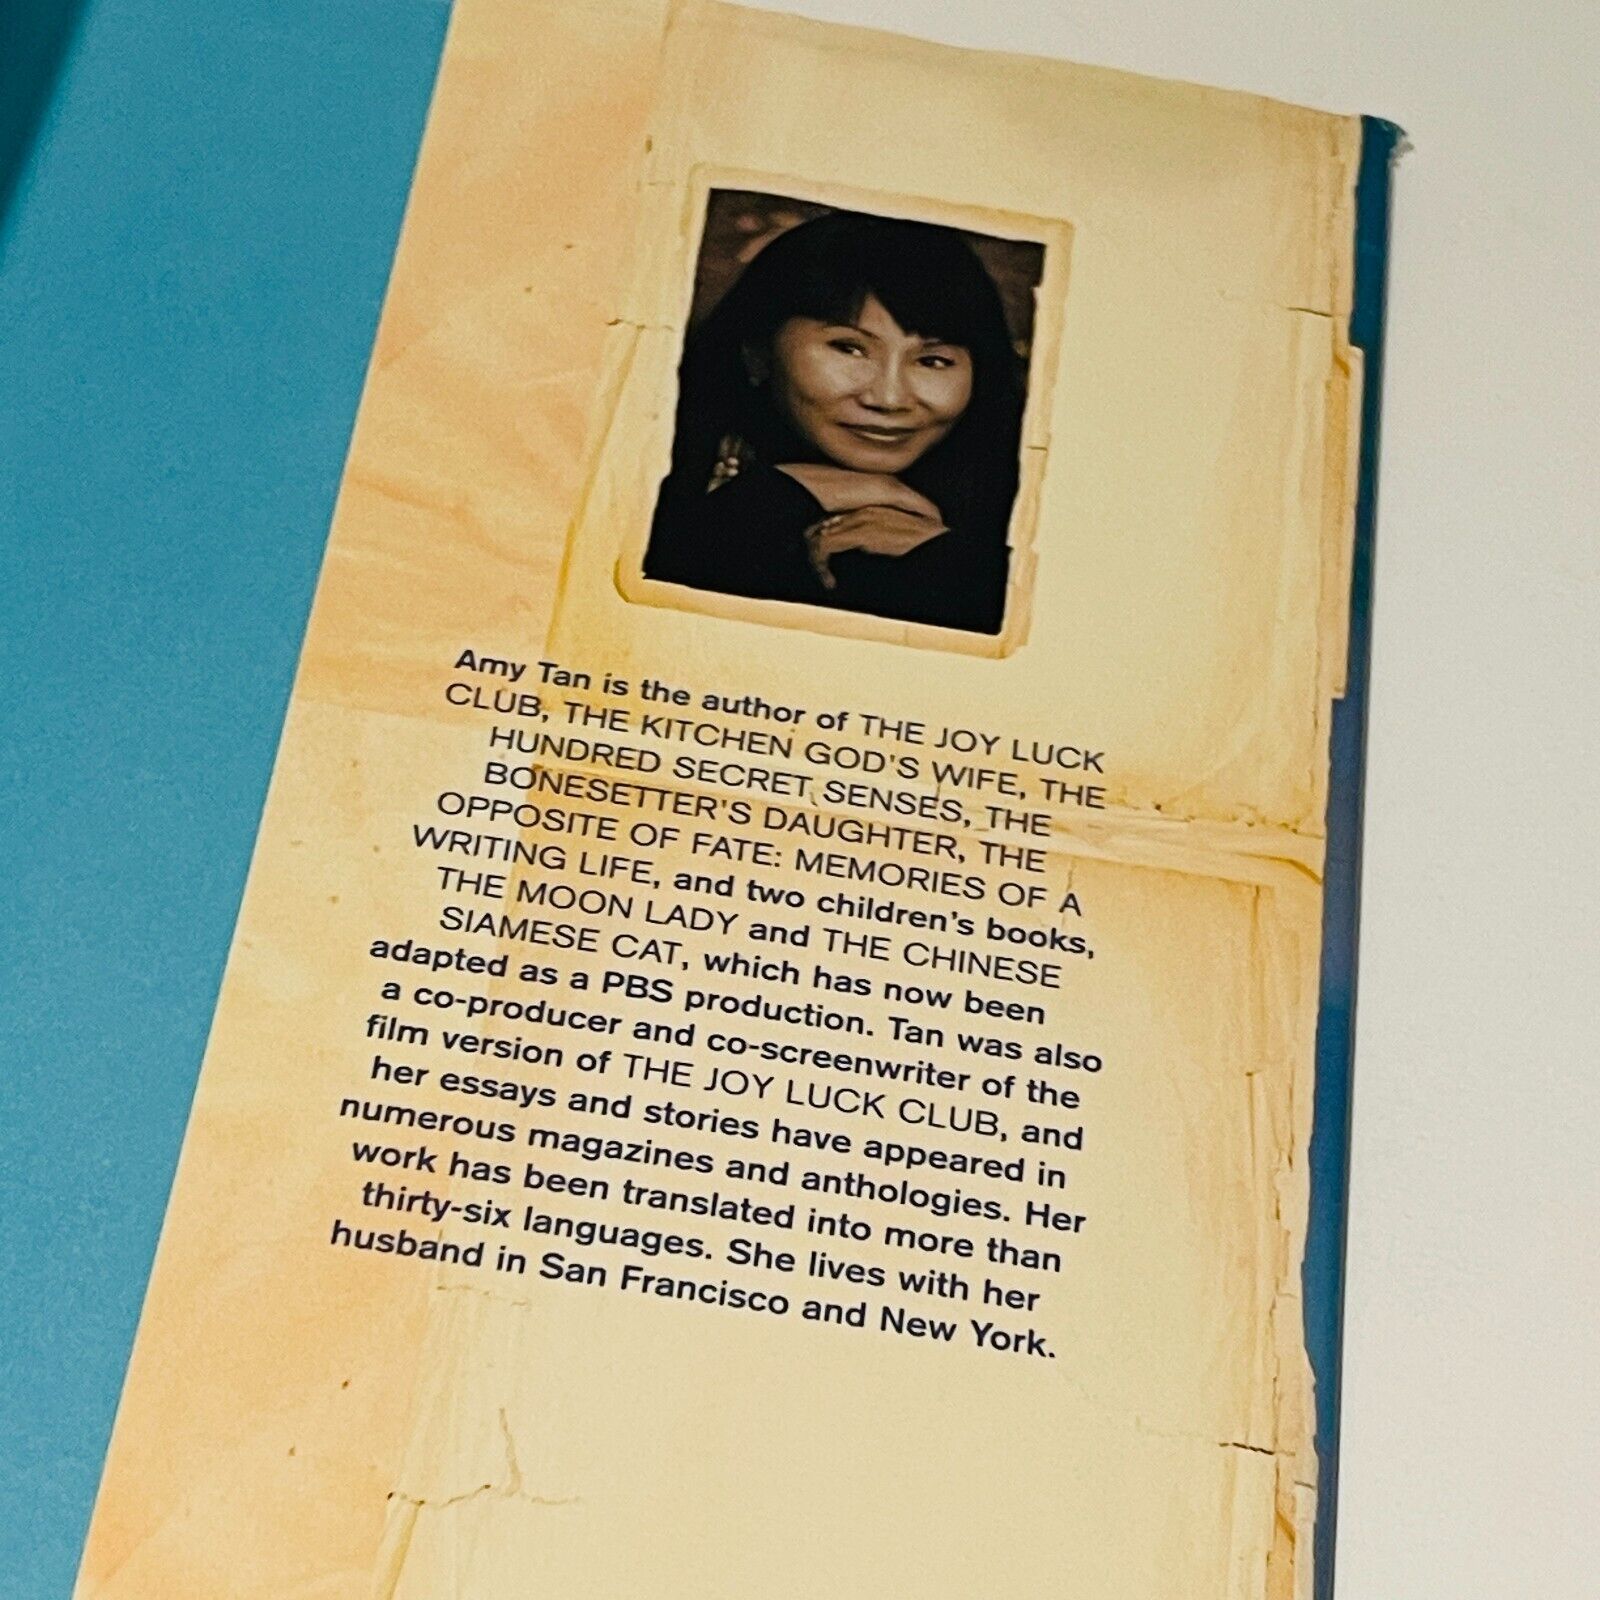 Amy Tan is the author of THE JOY LUCK
CLUB, THE KITCHEN GOD'S WIFE, THE
HUNDRED SECRET SENSES, THE
BONESETTER'S DAUGHTER, THE
OPPOSITE OF FATE: MEMORIES OF A
WRITING LIFE, and two children's books,
THE MOON LADY and THE CHINESE
SIAMESE CAT, which has now been
adapted as a PBS production. Tan was also
a co-producer and co-screenwriter of the
film version of THE JOY LUCK CLUB, and
her essays and stories have appeared in
numerous magazines and anthologies. Her
work has been translated into more than
thirty-six languages. She lives with her
husband in San Francisco and New York.